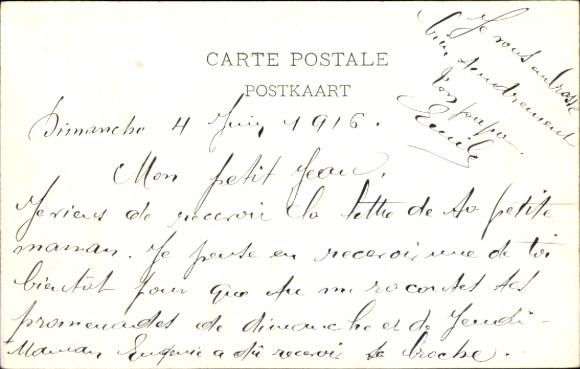 CARTE POSTALE
POSTKAART
Dimanche 4 Juin 1916.
Mon petit Jean,
Je viens de recevoir la lettre de ta petite
maman. Je pense en recevoir une de toi
bientôt pour que tu me racontes tes
promenades de dimanche et de Jeudi -
Maman Eugénie a dû recevoir sa broche.
Je vous embrasse
bien tendrement
Ton papa.
Emile